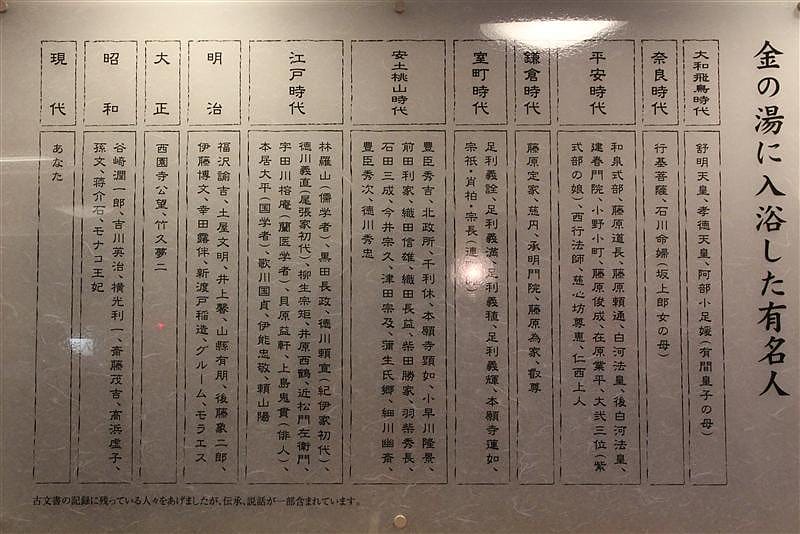 金の湯に入浴した有名人
大和飛鳥時代
舒明天皇、孝徳天皇、阿部小足媛(有間皇子の母)
奈良時代
行基菩薩、石川命婦(坂上郎女の母)
平安時代
和泉式部、藤原道長、藤原頼通、白河法皇、後白河法皇、
建春門院、小野小町、藤原俊成、在原業平、大弐三位(紫
式部の娘)、西行法師、慈心坊尊恵、仁西上人
鎌倉時代
藤原定家、慈円、承明門院、藤原為家、叡尊
室町時代
足利義詮、足利義満、足利義稙、足利義輝、本願寺蓮如、
宗祇・肖柏・宗長(連
安土桃山時代
豊臣秀吉、北政所、千利休、本願寺顕如、小早川隆景、
前田利家、織田信雄、織田長益、柴田勝家、羽柴秀長、
石田三成、今井宗久、津田宗及、蒲生氏郷、細川幽斎
豊臣秀次、徳川秀忠
江戸時代
林羅山(儒学者)、黒田長政、徳川頼宣(紀伊家初代)、
徳川義直(尾張家初代)、柳生宗矩、井原西鶴、近松門左衛門、
宇田川榕庵(蘭医学者)、貝原益軒、上島鬼貫(俳人)、
本居大平(国学者)、歌川国貞、伊能忠敬、頼山陽
明治
福沢諭吉、土屋文明、井上馨、山縣有朋、後藤象二郎、
伊藤博文、幸田露伴、新渡戸稲造、グルーム、モラエス
大正
西園寺公望、竹久夢二
昭和
谷崎潤一郎、吉川英治、横光利一、斎藤茂吉、高浜虚子、
孫文、蒋介石、モナコ王妃
現代
あなた
古文書の記録に残っている人々をあげましたが、伝承、説話が一部含まれています。